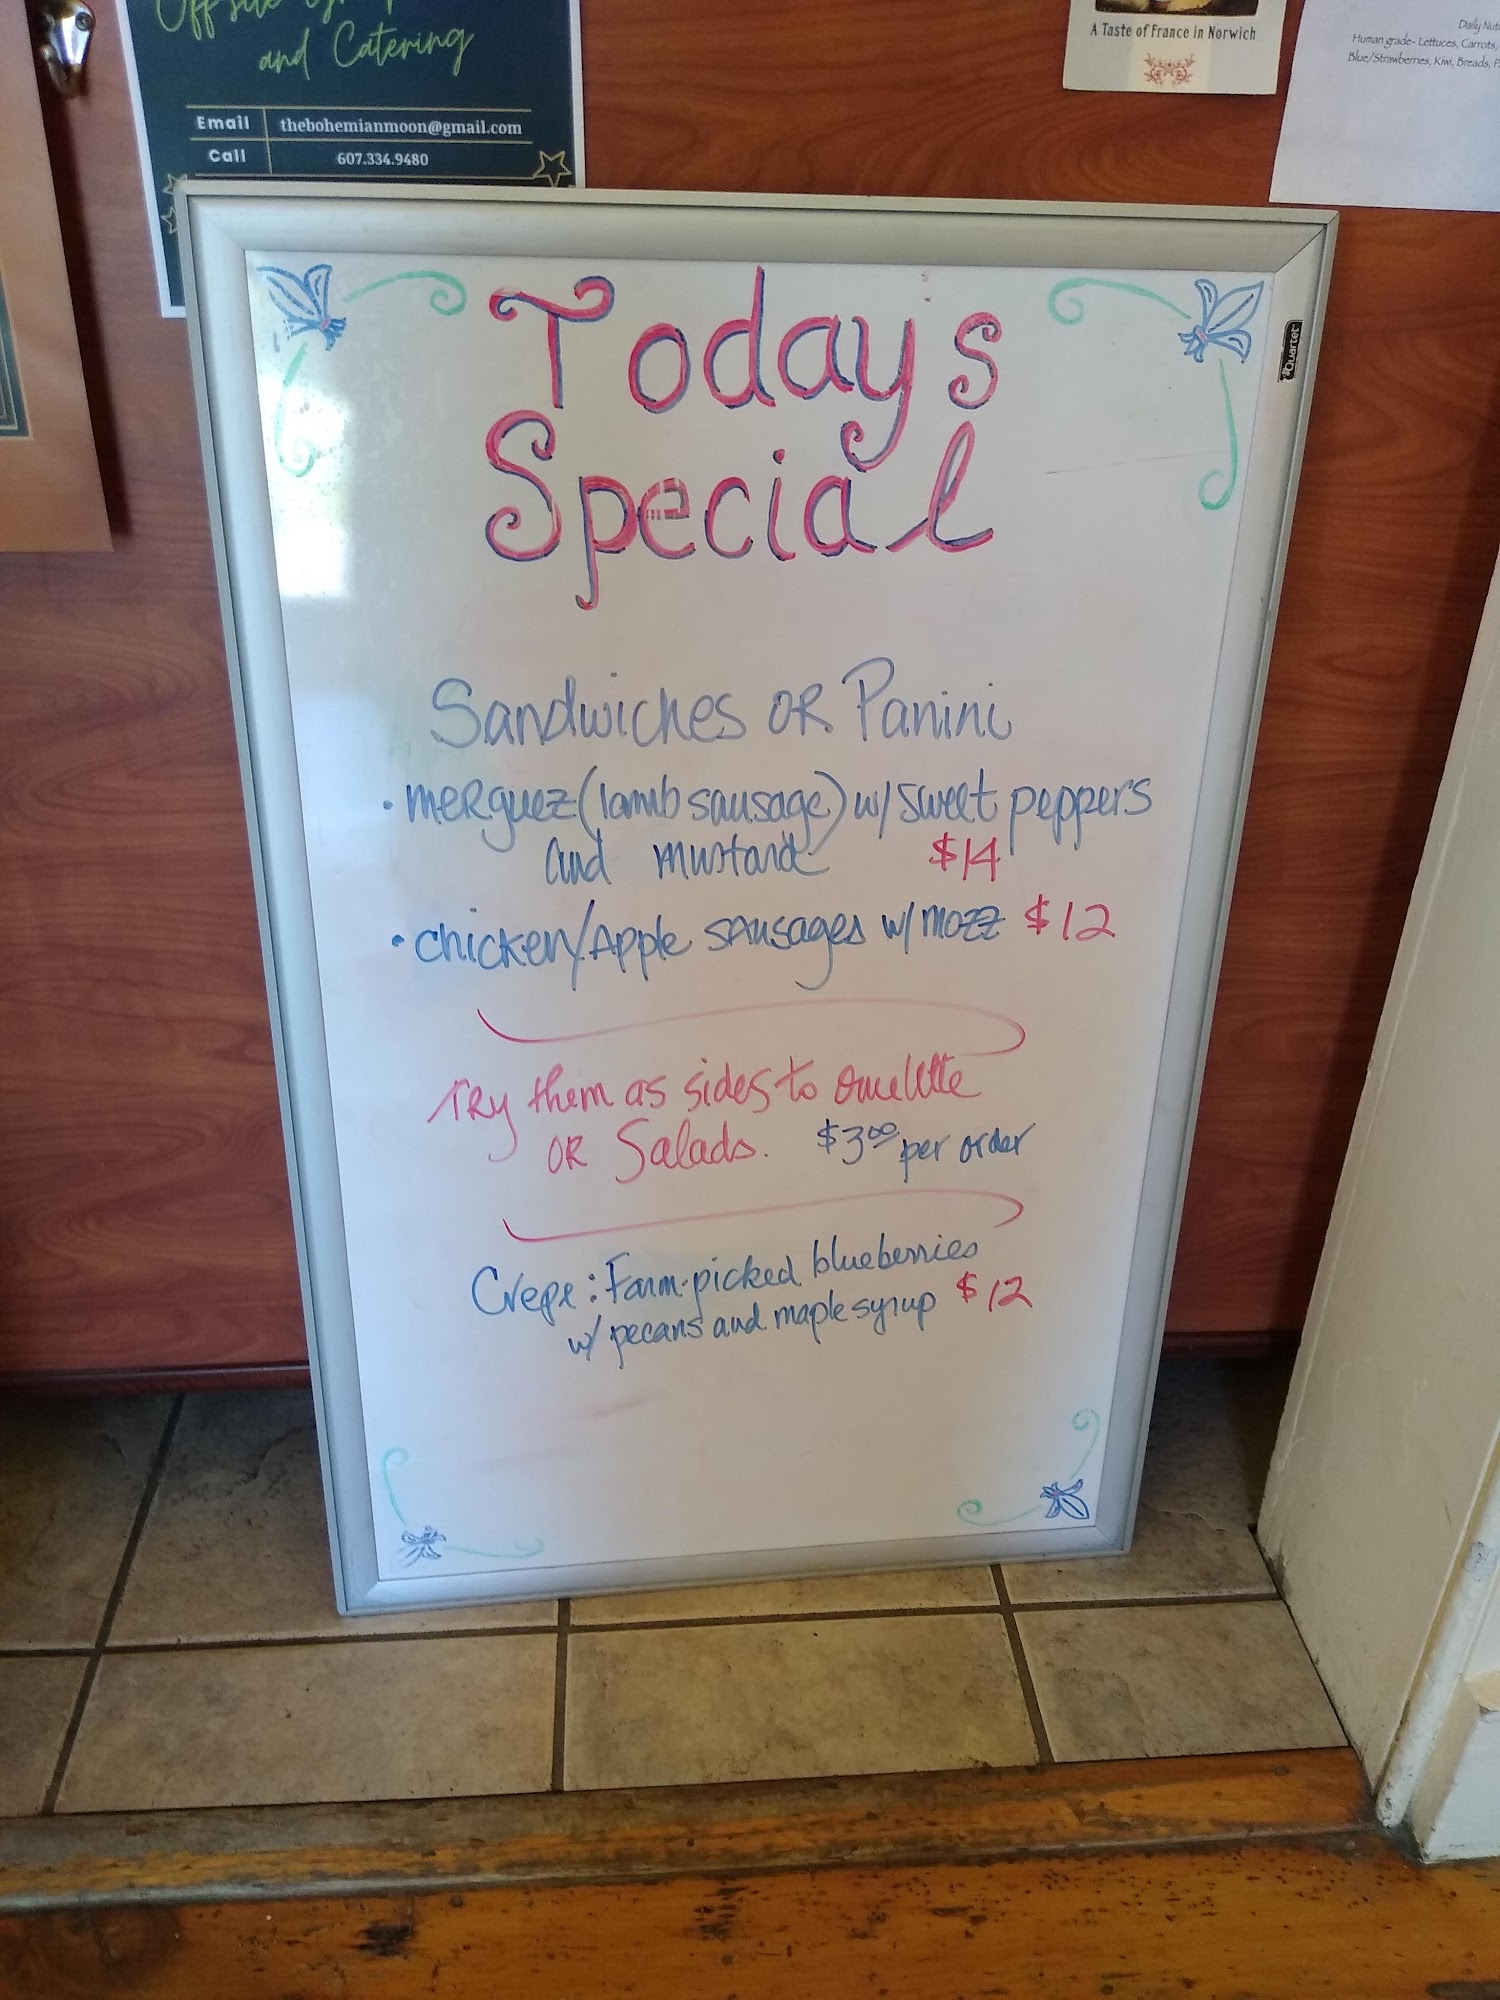 and Catering
Email thebohemianmoon@gmail.com
Call 607.334.9480
A Taste of France in Norwich
Daily
Human grade- Lettuces, Carrots,
Blue/Strawberries, Kiwi, Breads,
Quartet
Today's
Special
Sandwiches OR Panini
• merguez (lamb sausage) w/ sweet peppers
and mustard $14
• chicken/Apple sausages w/ mozz $12
Try them as sides to omelette
OR Salads. $3.00 per order
Crepe: Farm-picked blueberries
w/ pecans and maple syrup $12